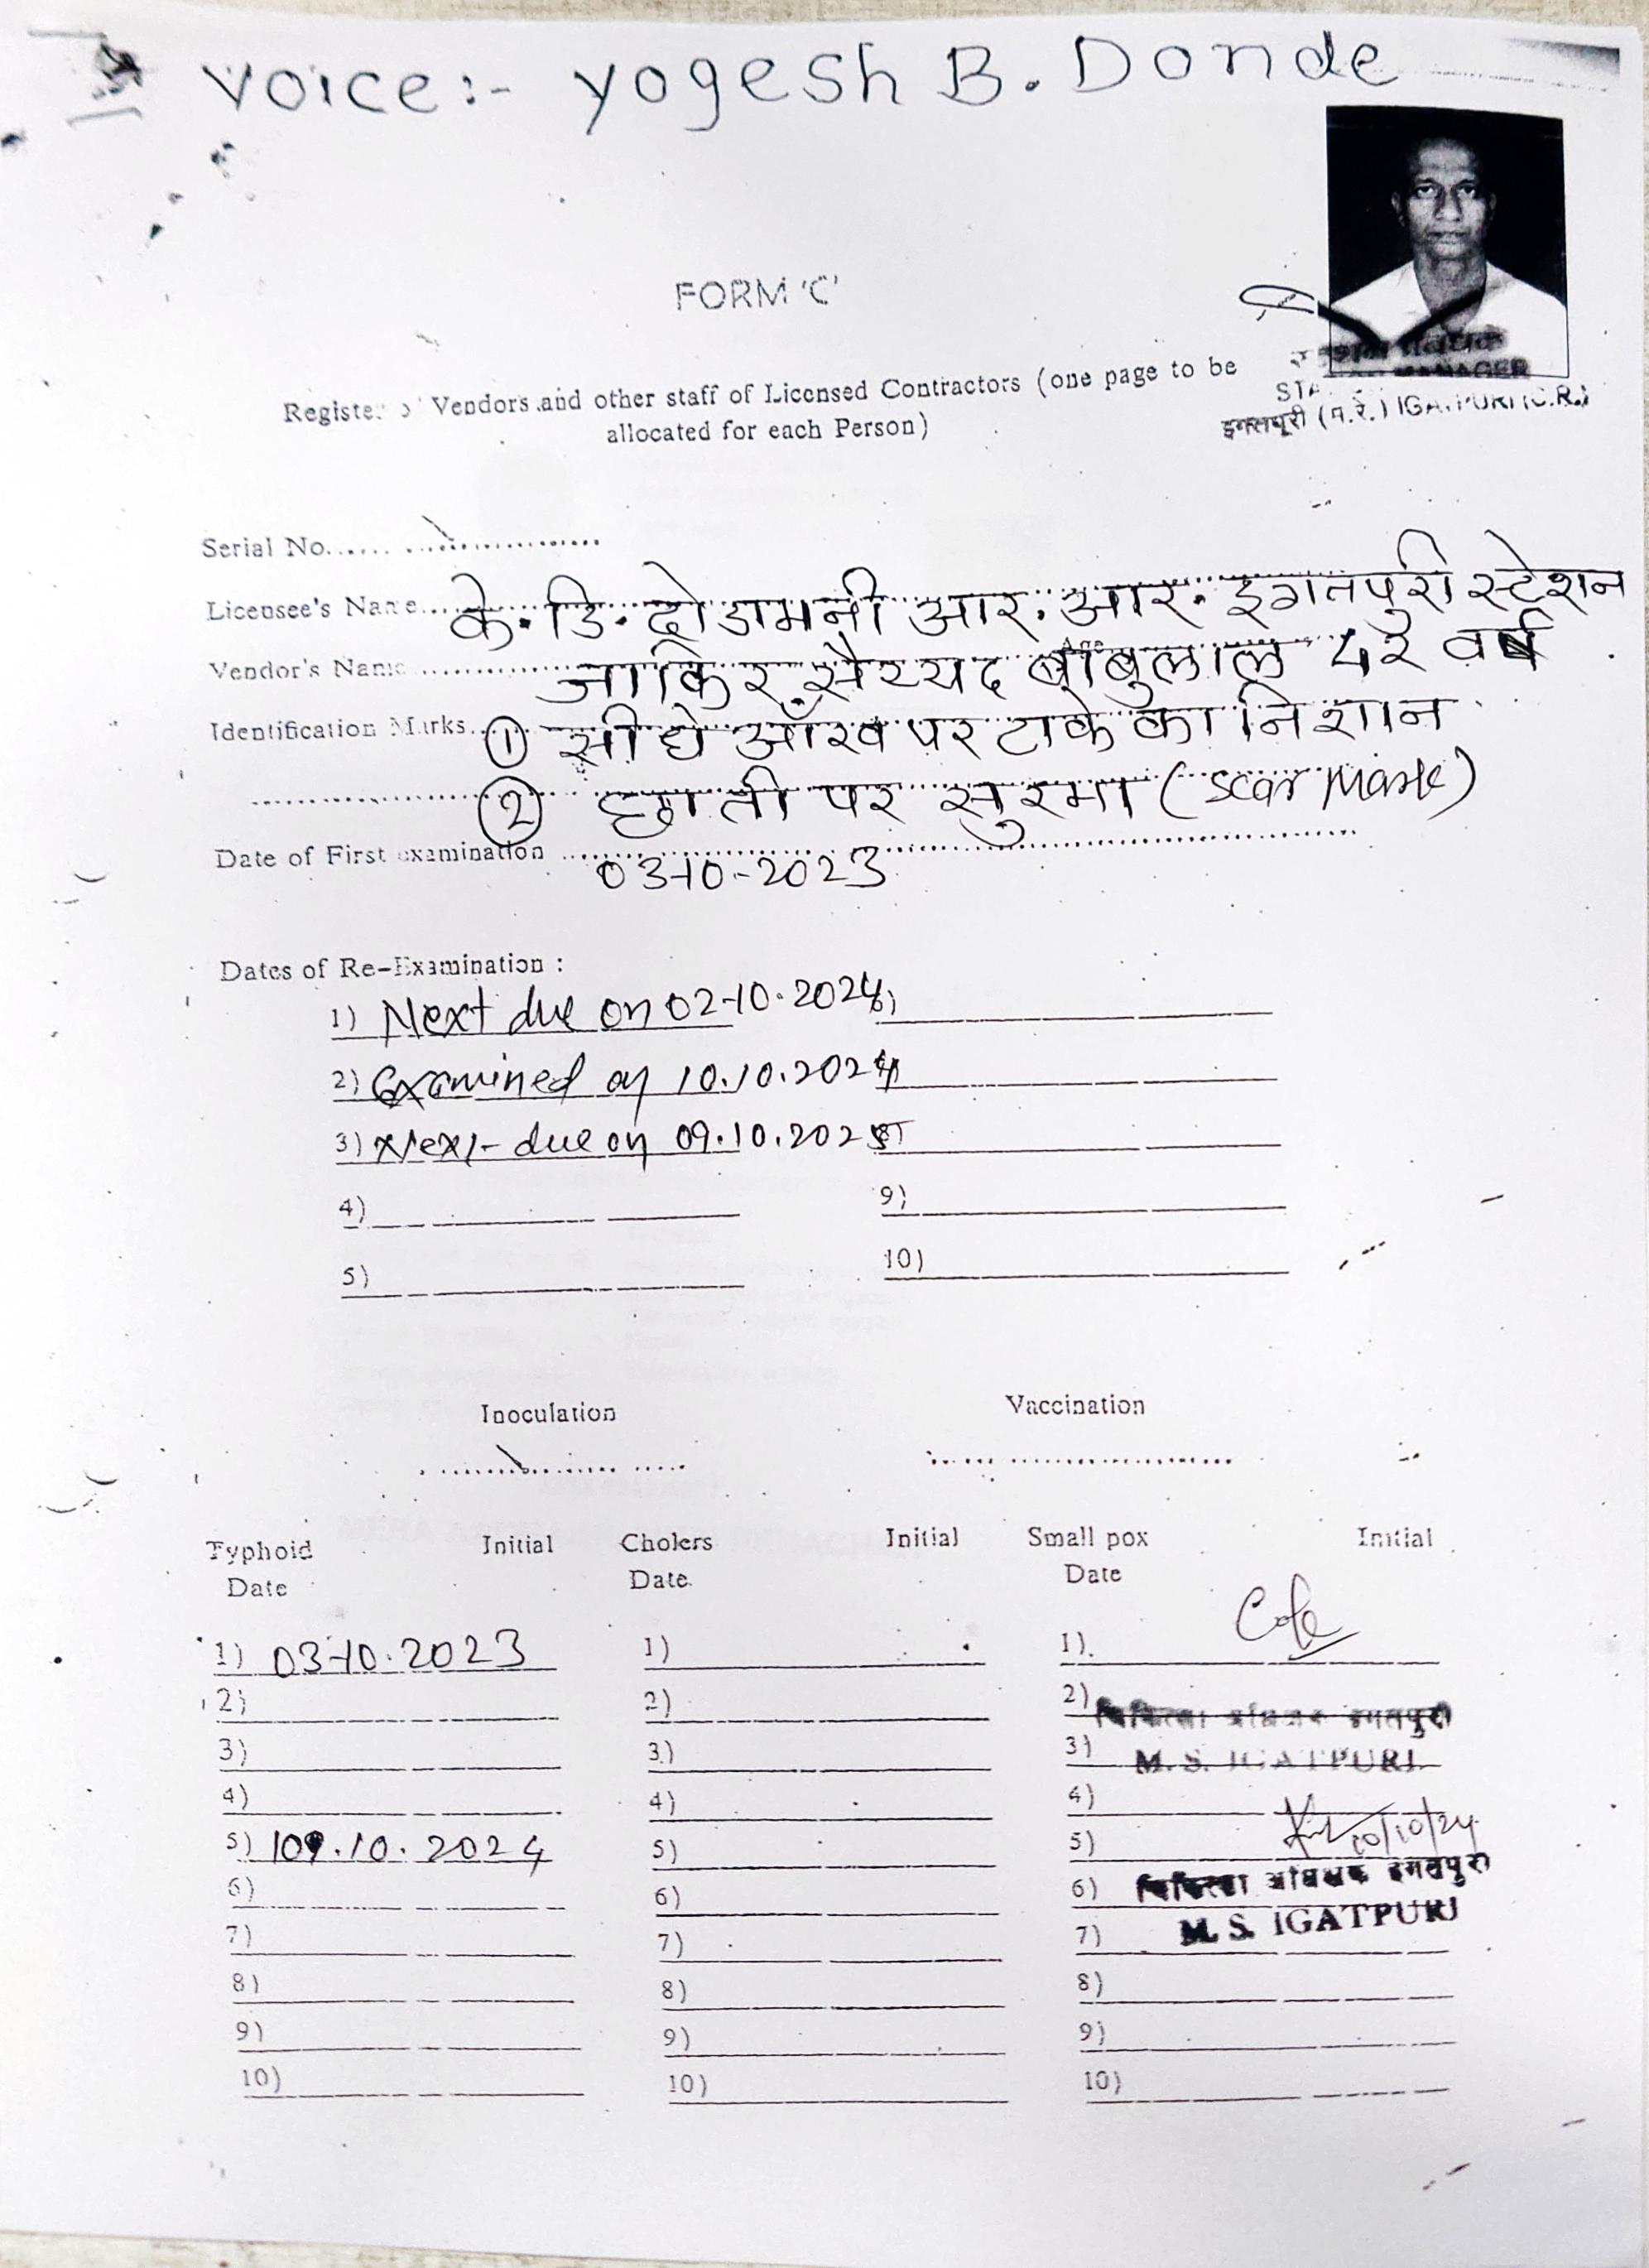 Voice:- Yogesh B. Donde
FORM 'C'
Register of Vendors and other staff of Licensed Contractors (one page to be
allocated for each Person)
STATION MANAGER
इगतपूरी (म.रे.) IGATPURI (C.R.)
Serial No.
Licensee's Name के. डि. दोडामनी आर. आर. इगतपुरी स्टेशन
Vendor's Name जाकिर सैय्यद बाबुलाल Age 42 वर्ष
Identification Marks ① सीधे आँख पर टाके का निशान
② छाती पर सुरमा (scar Mark)
Date of First examination 03-10-2023
Dates of Re-Examination :
1) Next due on 02-10-2024 6)
2) Examined on 10.10.2024
3) Next due on 09.10.2025
4) 9)
5) 10)
Inoculation Vaccination
Typhoid Initial Cholers Initial Small pox Initial
Date Date Date
1) 03-10-2023 1) 1)
2) 2) 2) चिकित्सा अधिक्षक इगतपुरी
3) 3) 3) M. S. IGATPURI
4) 4) 4)
5) 09.10.2024 5) 5) 10/10/24
6) 6) 6) चिकित्सा अधिक्षक इगतपुरी
7) 7) 7) M. S. IGATPURI
8) 8) 8)
9) 9) 9)
10) 10) 10)